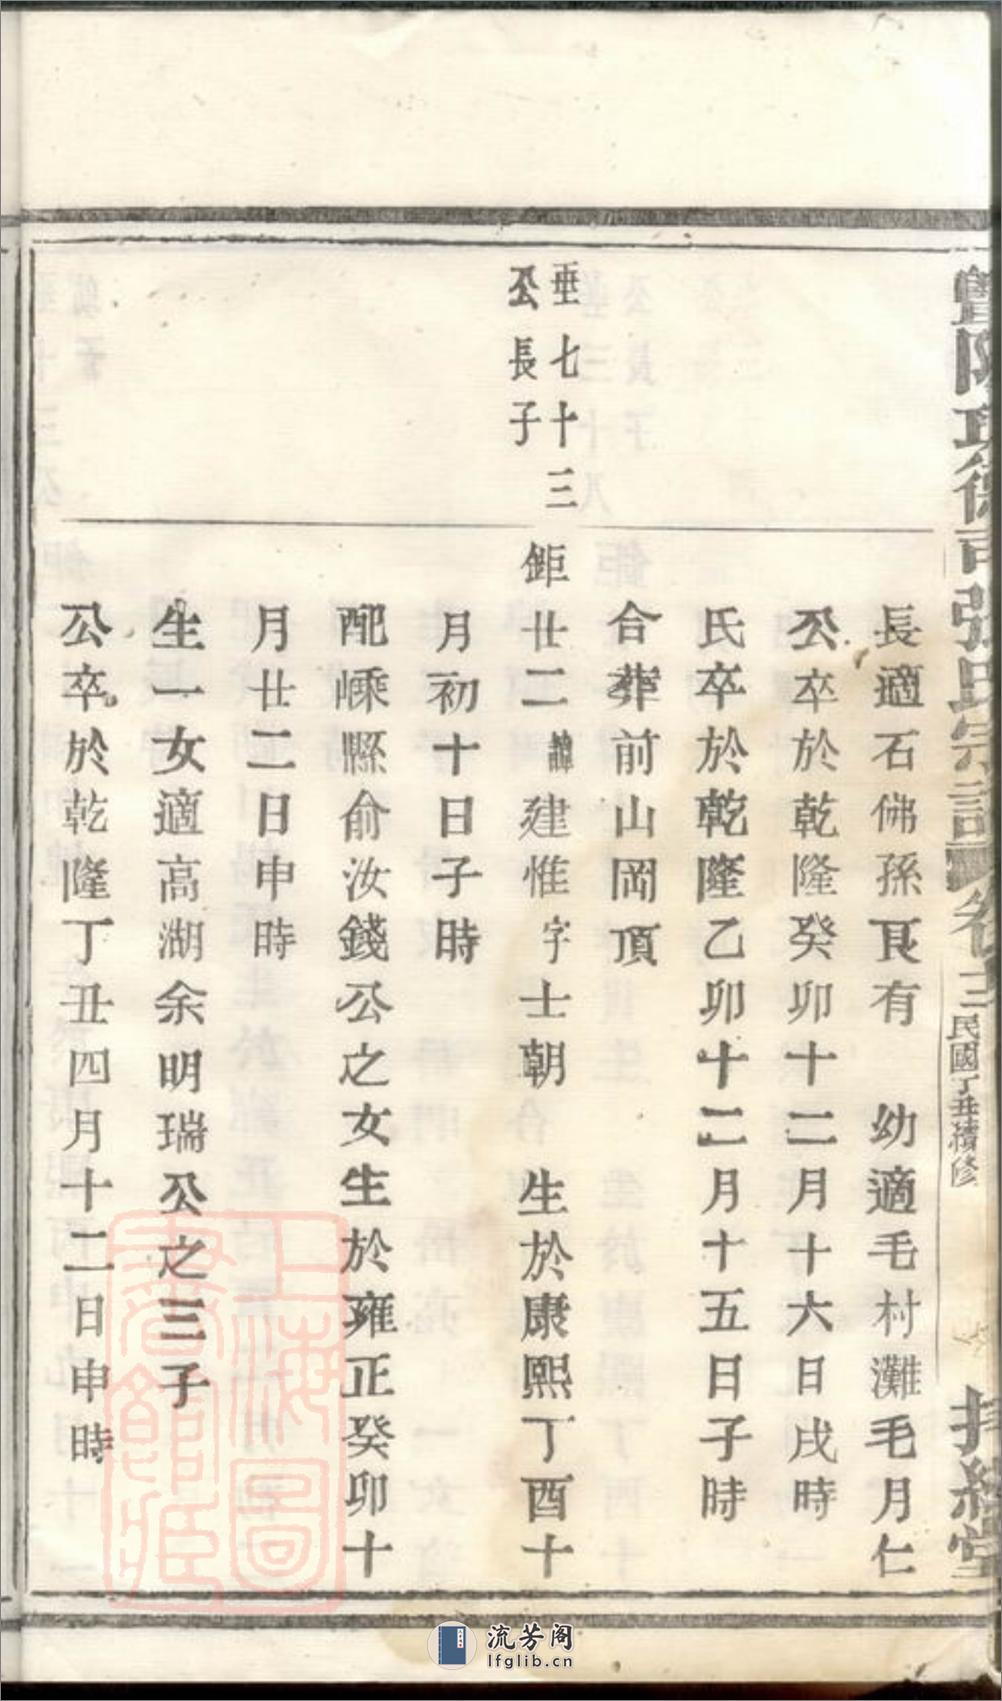 宗譜卷三民國丁丑續修
長適石佛孫良有　幼適毛村灘毛月仁
公卒於乾隆癸卯十二月十六日戌時
氏卒於乾隆乙卯十二月十五日子時
合葬前山岡頂
垂七十三
公長子
鉅廿二諱建惟字士朝　生於康熙丁酉十
月初十日子時
配嵊縣俞汝錢公之女生於雍正癸卯十
月廿二日申時
生一女適高湖余明瑞公之三子
公卒於乾隆丁丑四月十二日申時
上海圖書館藏
流芳阁
lfglib.cn